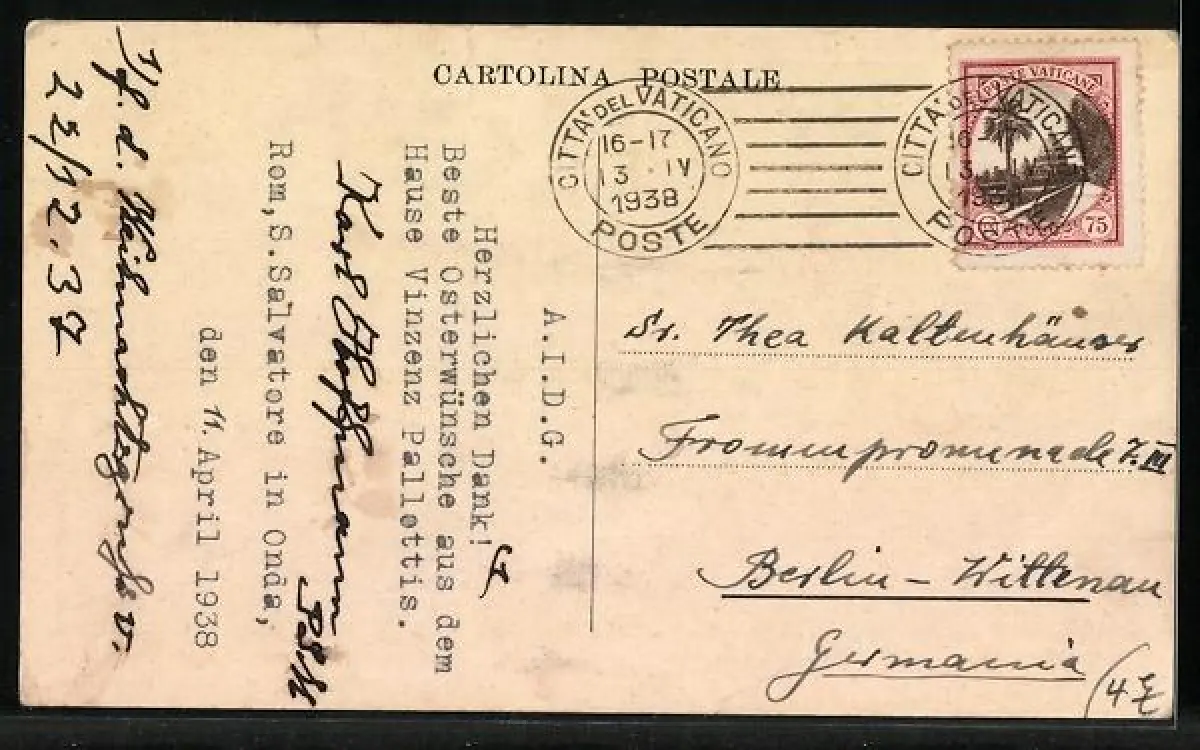 CARTOLINA POSTALE
CITTA' DEL VATICANO
16-17
13 · IV
1938
POSTE
CITTA' DEL VATICANO
POSTE
POSTE VATICANE
75
A.I.D.G.
Herzlichen Dank!
Beste Osterwünsche aus dem
Hause Vinzenz Pallottis.
Karl Hoffmann PSM
Rom, S.Salvatore in Onda,
den 11. April 1938
f. d. Weihnachtsgruß v.
22/12.37
Sr. Thea Kaltenhäuser
Frommpromenade 7. III
Berlin - Wittenau
Germania
(4